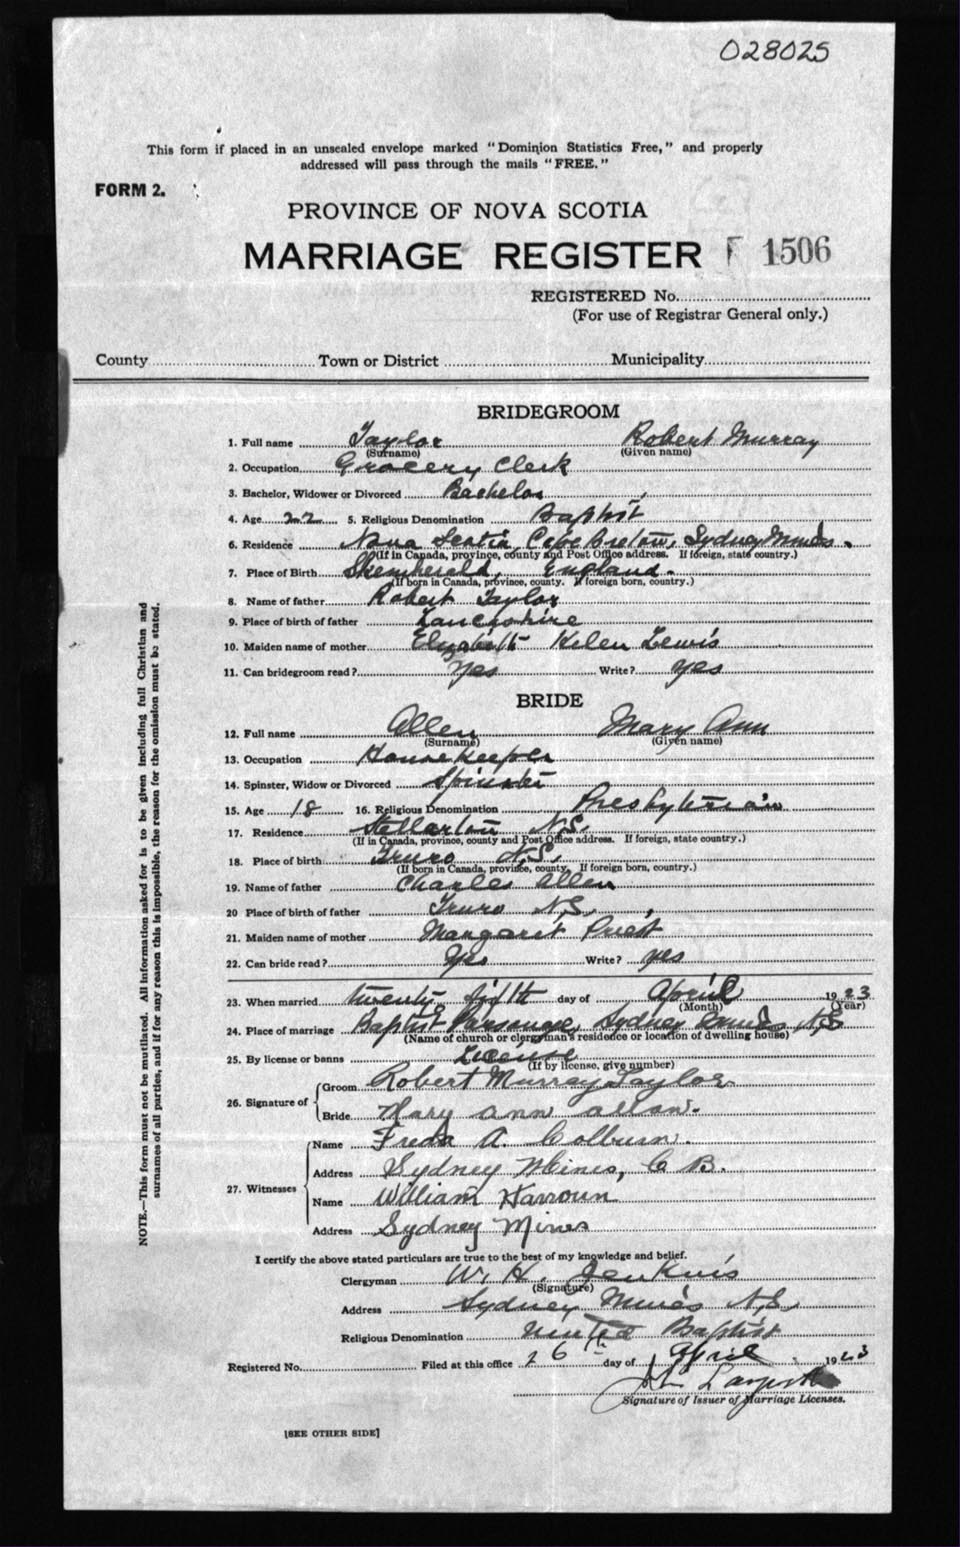 028025
This form if placed in an unsealed envelope marked "Dominion Statistics Free," and properly
addressed will pass through the mails "FREE."
FORM 2.
PROVINCE OF NOVA SCOTIA
MARRIAGE REGISTER 1506
REGISTERED No.
(For use of Registrar General only.)
County Town or District Municipality
BRIDEGROOM
1. Full name Taylor Robert Murray
(Surname) (Given name)
2. Occupation Grocery Clerk
3. Bachelor, Widower or Divorced Bachelor
4. Age 22 5. Religious Denomination Baptist
6. Residence Nova Scotia, Cape Breton, Sydney Mines.
(If in Canada, province, county and Post Office address. If foreign, state country.)
7. Place of Birth England.
(If born in Canada, province, county. If foreign born, country.)
8. Name of father Robert Taylor
9. Place of birth of father Lancashire
10. Maiden name of mother Elizabeth Helen Lewis
11. Can bridegroom read? Yes Write? yes
BRIDE
12. Full name Allen Mary Ann
(Surname) (Given name)
13. Occupation Housekeeper
14. Spinster, Widow or Divorced Spinster
15. Age 18 16. Religious Denomination Presbyterian
17. Residence Stellarton N.S.
(If in Canada, province, county and Post Office address. If foreign, state country.)
18. Place of birth Truro N.S.
(If born in Canada, province, county. If foreign born, country.)
19. Name of father Charles Allen
20 Place of birth of father Truro N.S.
21. Maiden name of mother Margaret Priest
22. Can bride read? Yes Write? yes
23. When married twenty fifth day of April 1923
(Month) (Year)
24. Place of marriage Baptist Parsonage, Sydney Mines N.S
(Name of church or clergyman's residence or location of dwelling house)
25. By license or banns License
(If by license, give number)
26. Signature of Groom Robert Murray Taylor
Bride Mary ann allan.
27. Witnesses Name Freda A. Colburn.
Address Sydney Mines, C B.
Name William Harroun
Address Sydney Mines
I certify the above stated particulars are true to the best of my knowledge and belief.
Clergyman W. H. Jenkins
(Signature)
Address Sydney Mines N.S
Religious Denomination United Baptist
Registered No. Filed at this office 26th day of April 1923
Signature of Issuer of Marriage Licenses.
[SEE OTHER SIDE]
NOTE.—This form must not be mutilated. All information asked for is to be given including full Christian and
surnames of all parties, and if for any reason this is impossible, the reason for the omission must be stated.